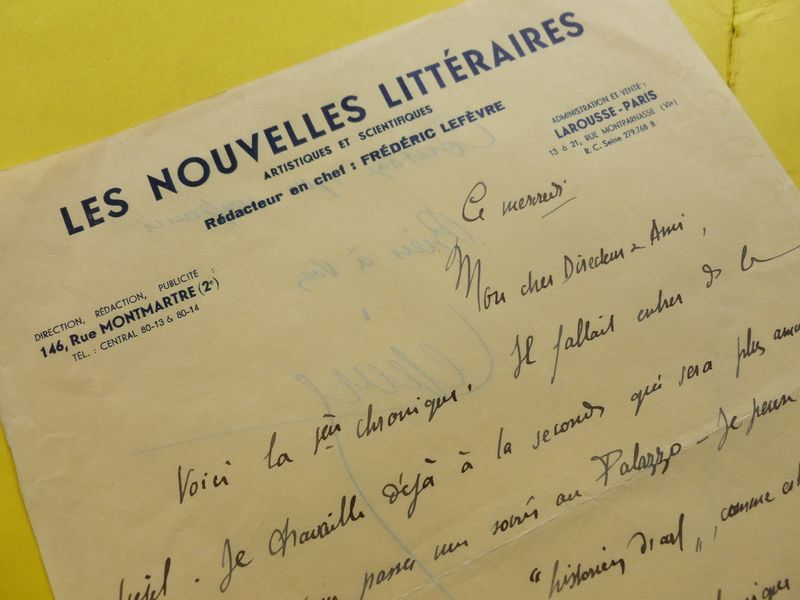 LES NOUVELLES LITTÉRAIRES
ARTISTIQUES ET SCIENTIFIQUES
Rédacteur en chef : FRÉDÉRIC LEFÈVRE
ADMINISTRATION ET VENTE :
LAROUSSE-PARIS
13 à 21, RUE MONTPARNASSE (VIe)
R. C. Seine 279.768 B
DIRECTION, RÉDACTION, PUBLICITÉ :
146, Rue MONTMARTRE (2e)
TÉL. : CENTRAL 80-13 & 80-14
Ce mercredi
Mon cher Directeur & Ami,
Voici la 1ère chronique. Il fallait entrer de la
Je travaille déjà à la seconde qui sera plus
passer une soirée au Palazzo - Je peux
"historien d'art", comme